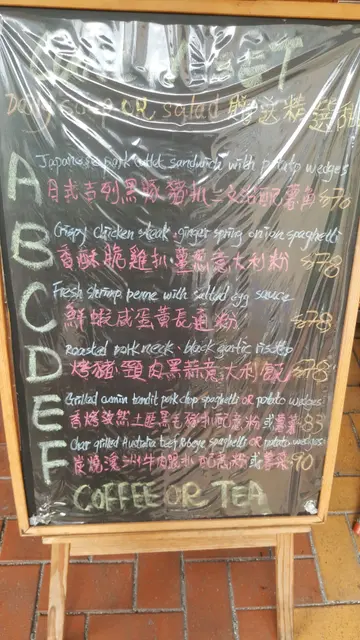 SET
Daily soup OR salad
A
Japanese pork cutlet sandwich with potato wedges
日式吉列黑豚豬扒三文治配薯角 $70
B
Crispy chicken steak, ginger spring onion spaghetti
香酥脆雞扒薑蔥意大利粉 $78
C
Fresh shrimp penne with salted egg sauce
鮮蝦咸蛋黃長通粉 $78
D
Roasted pork neck, black garlic risotto
烤豬頸肉黑蒜意大利飯 $78
E
Grilled cumin pork chop spaghetti OR potato wedges
香烤孜然土匪豬扒配意粉或薯 83
F
Char grilled Australia beef Ribeye spaghetti OR potato wedges
炭燒澳洲牛肉眼扒配意粉或薯 90
- COFFEE OR TEA